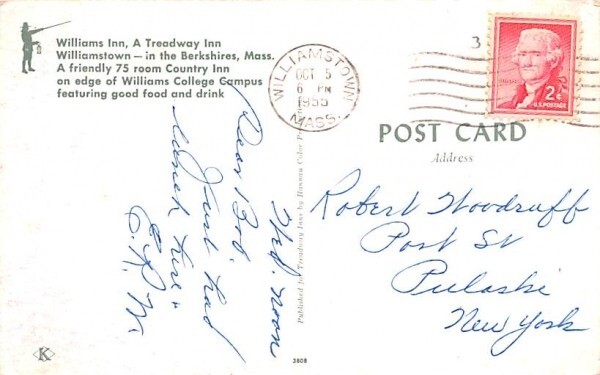 Williams Inn, A Treadway Inn
Williamstown — in the Berkshires, Mass.
A friendly 75 room Country Inn
on edge of Williams College Campus
featuring good food and drink
WILLIAMSTOWN
OCT 5
6 PM
1955
MASS.
3
2¢
U.S. POSTAGE
POST CARD
Address
Wed. Noon
Dear Bob,
Just had
lunch here.
E.R.W.
Robert Woodruff
Post St
Pulaski
New York
Published for Treadway Inns by Hannau Color
K
3808